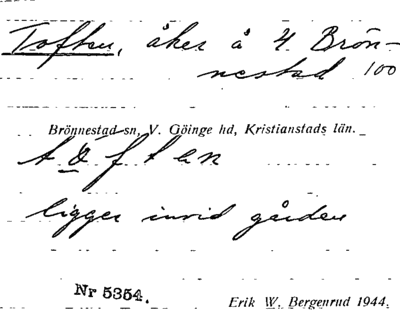 Toften, åker å 4 Brön-
nestad 100
Brönnestad sn, V. Göinge hd, Kristianstads län.
ligger invid gården
Nr 5354.
Erik W. Bergenrud 1944.